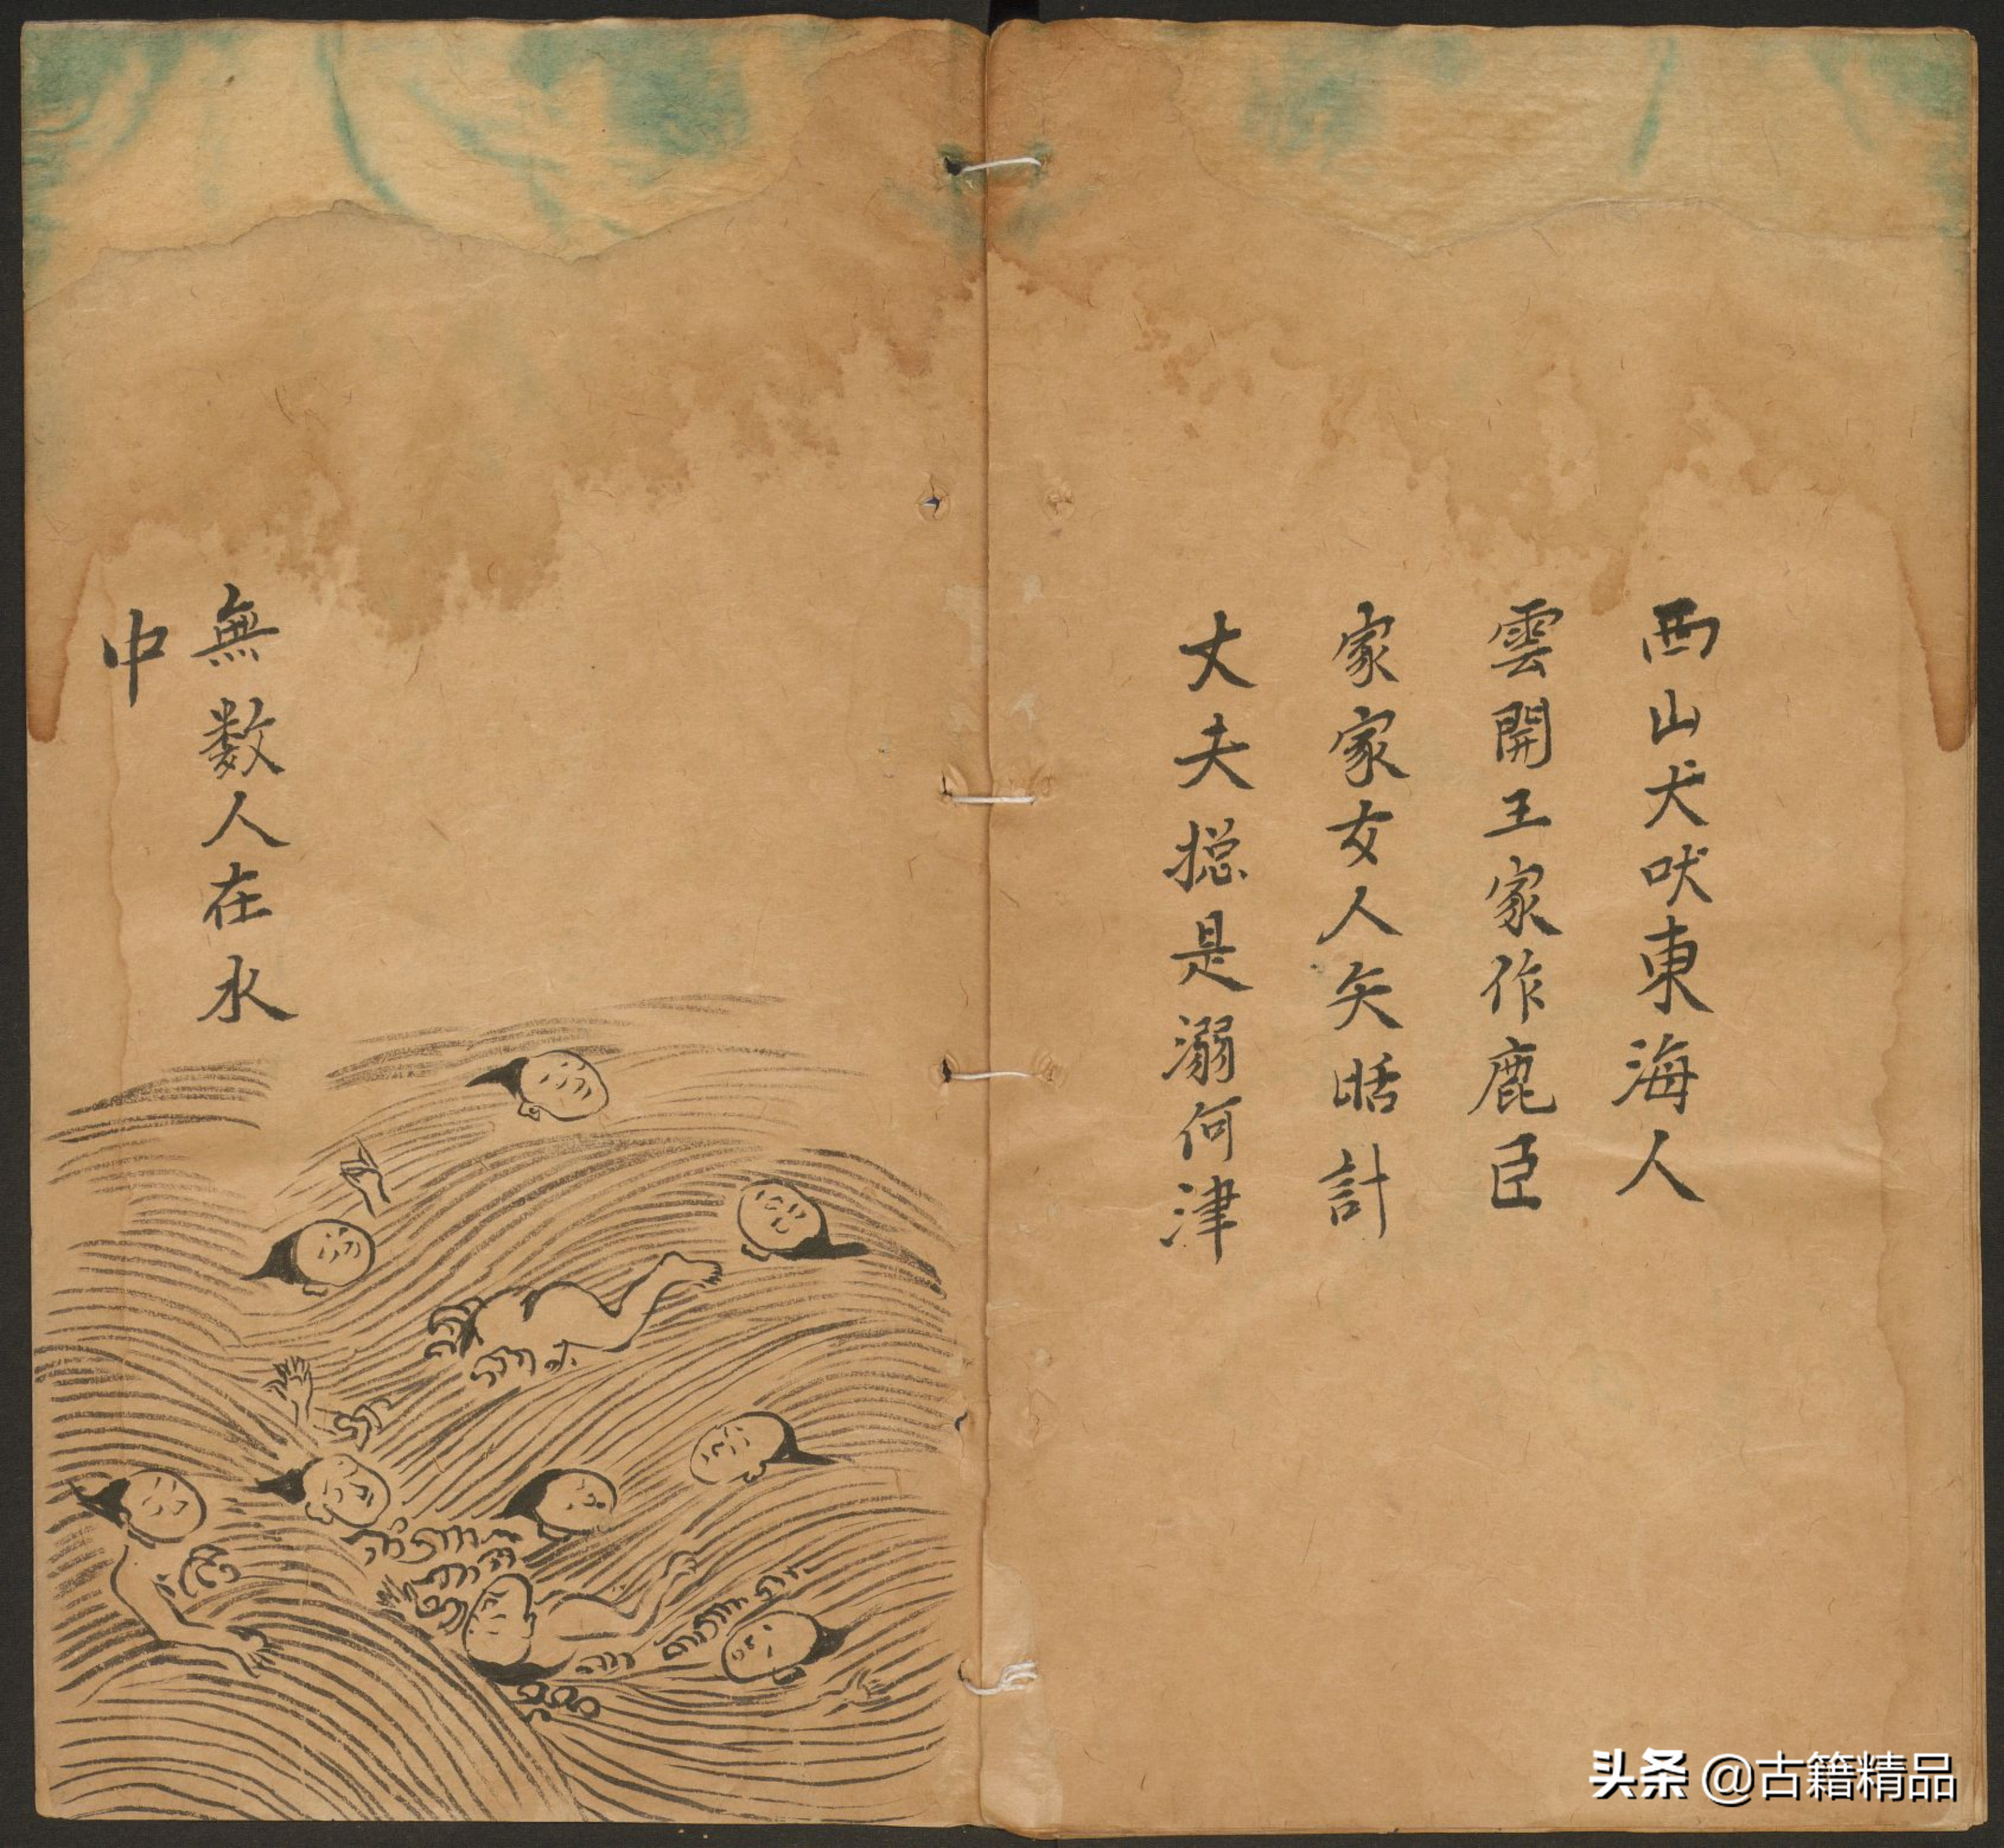 西山犬吠東海人
雲開王家作鹿臣
家家女人矢𣆥計
丈夫捴是溺何津
無数人在水
中
头条 @古籍精品